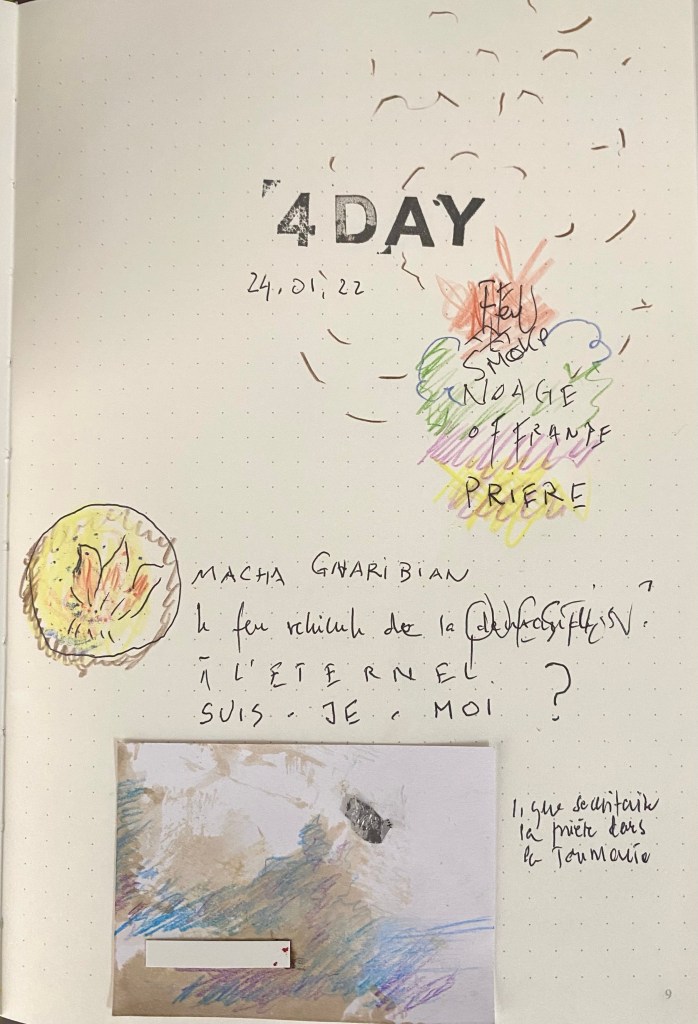 4 DAY
24.01.22
FEU
SMOKE
NOAGE
OFFRANDE
PRIERE
MACHA GHARIBIAN
le feu vehicule de la QUESTION ?
À L'ETERNEL
SUIS-JE. MOI ?
la prière dans
la Tourmente
9